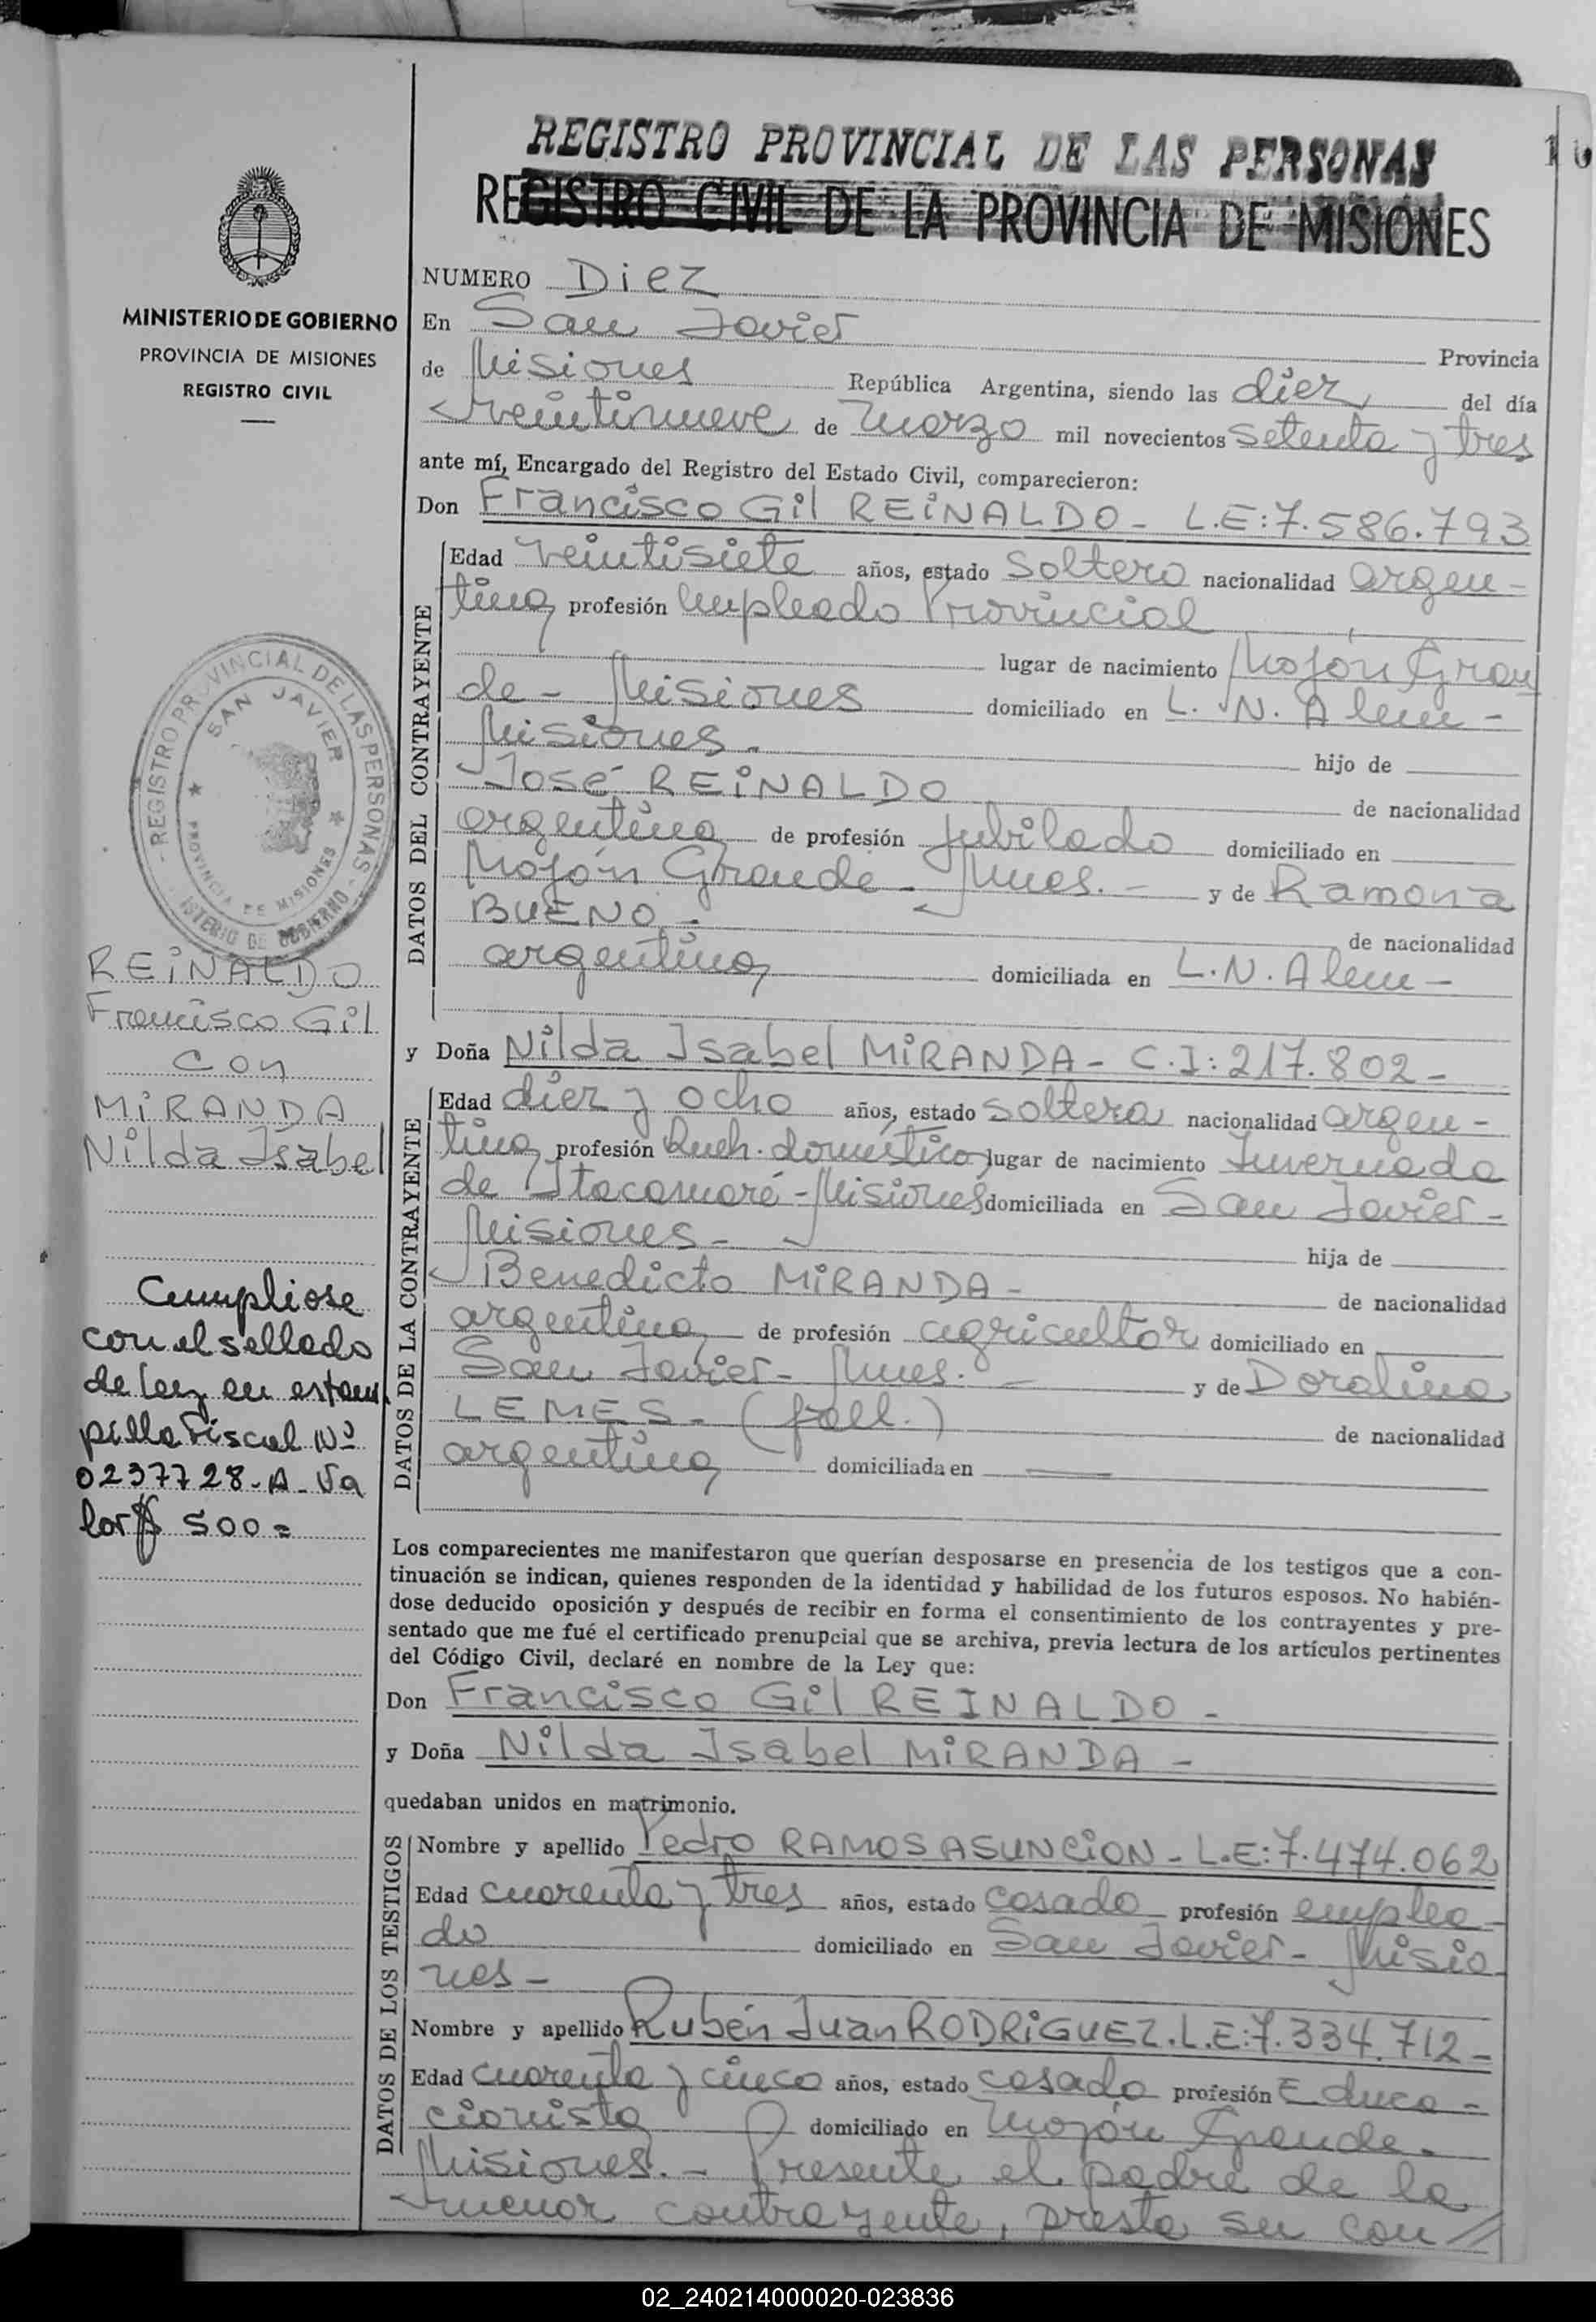 REGISTRO PROVINCIAL DE LAS PERSONAS
REGISTRO CIVIL DE LA PROVINCIA DE MISIONES
MINISTERIO DE GOBIERNO
PROVINCIA DE MISIONES
REGISTRO CIVIL
NUMERO Diez
En San Javier Provincia
de Misiones República Argentina, siendo las diez del día
veintinueve de marzo mil novecientos setenta y tres
ante mí, Encargado del Registro del Estado Civil, comparecieron:
Don Francisco Gil REINALDO - L.E: 7.586.793
DATOS DEL CONTRAYENTE
Edad veintisiete años, estado soltero nacionalidad argen-
tina profesión empleado Provincial
lugar de nacimiento Mojón Gran
de - Misiones domiciliado en L. N. Alem -
Misiones - hijo de
José REINALDO de nacionalidad
argentina de profesión jubilado domiciliado en
Mojón Grande - Mnes. - y de Ramona
BUENO - de nacionalidad
argentina domiciliada en L.N. Alem -
y Doña Nilda Isabel MIRANDA - C.I: 217.802 -
DATOS DE LA CONTRAYENTE
Edad diez y ocho años, estado soltera nacionalidad argen -
tina profesión Queh. doméstico lugar de nacimiento Invernada
de Itacaruaré - Misiones domiciliada en San Javier -
Misiones - hija de
Benedicto MIRANDA - de nacionalidad
argentina de profesión agricultor domiciliado en
San Javier - Mnes. - y de Doralina
LEMES - (fall.) de nacionalidad
argentina domiciliada en —
Los comparecientes me manifestaron que querían desposarse en presencia de los testigos que a con-
tinuación se indican, quienes responden de la identidad y habilidad de los futuros esposos. No habién-
dose deducido oposición y después de recibir en forma el consentimiento de los contrayentes y pre-
sentado que me fué el certificado prenupcial que se archiva, previa lectura de los artículos pertinentes
del Código Civil, declaré en nombre de la Ley que:
Don Francisco Gil REINALDO -
y Doña Nilda Isabel MIRANDA -
quedaban unidos en matrimonio.
DATOS DE LOS TESTIGOS
Nombre y apellido Pedro RAMOS ASUNCION - L.E: 7.474.062
Edad cuarenta y tres años, estado casado profesión emplea-
do domiciliado en San Javier - Misio
nes -
Nombre y apellido Rubén Juan RODRIGUEZ. L.E: 7.334.712 -
Edad cuarenta y cinco años, estado casado profesión Educa -
cionista domiciliado en Mojón Grande -
Misiones. - Presente el padre de la
menor contrayente, presta su con //
REGISTRO PROVINCIAL DE LAS PERSONAS
SAN JAVIER
PROVINCIA DE MISIONES
MINISTERIO DE GOBIERNO
REINALDO
Francisco Gil
con
MIRANDA
Nilda Isabel
Cumpliose
con el sellado
de ley en estam
pilla Fiscal Nº
0237728-A- Va
lor $ 500=
02_240214000020-023836